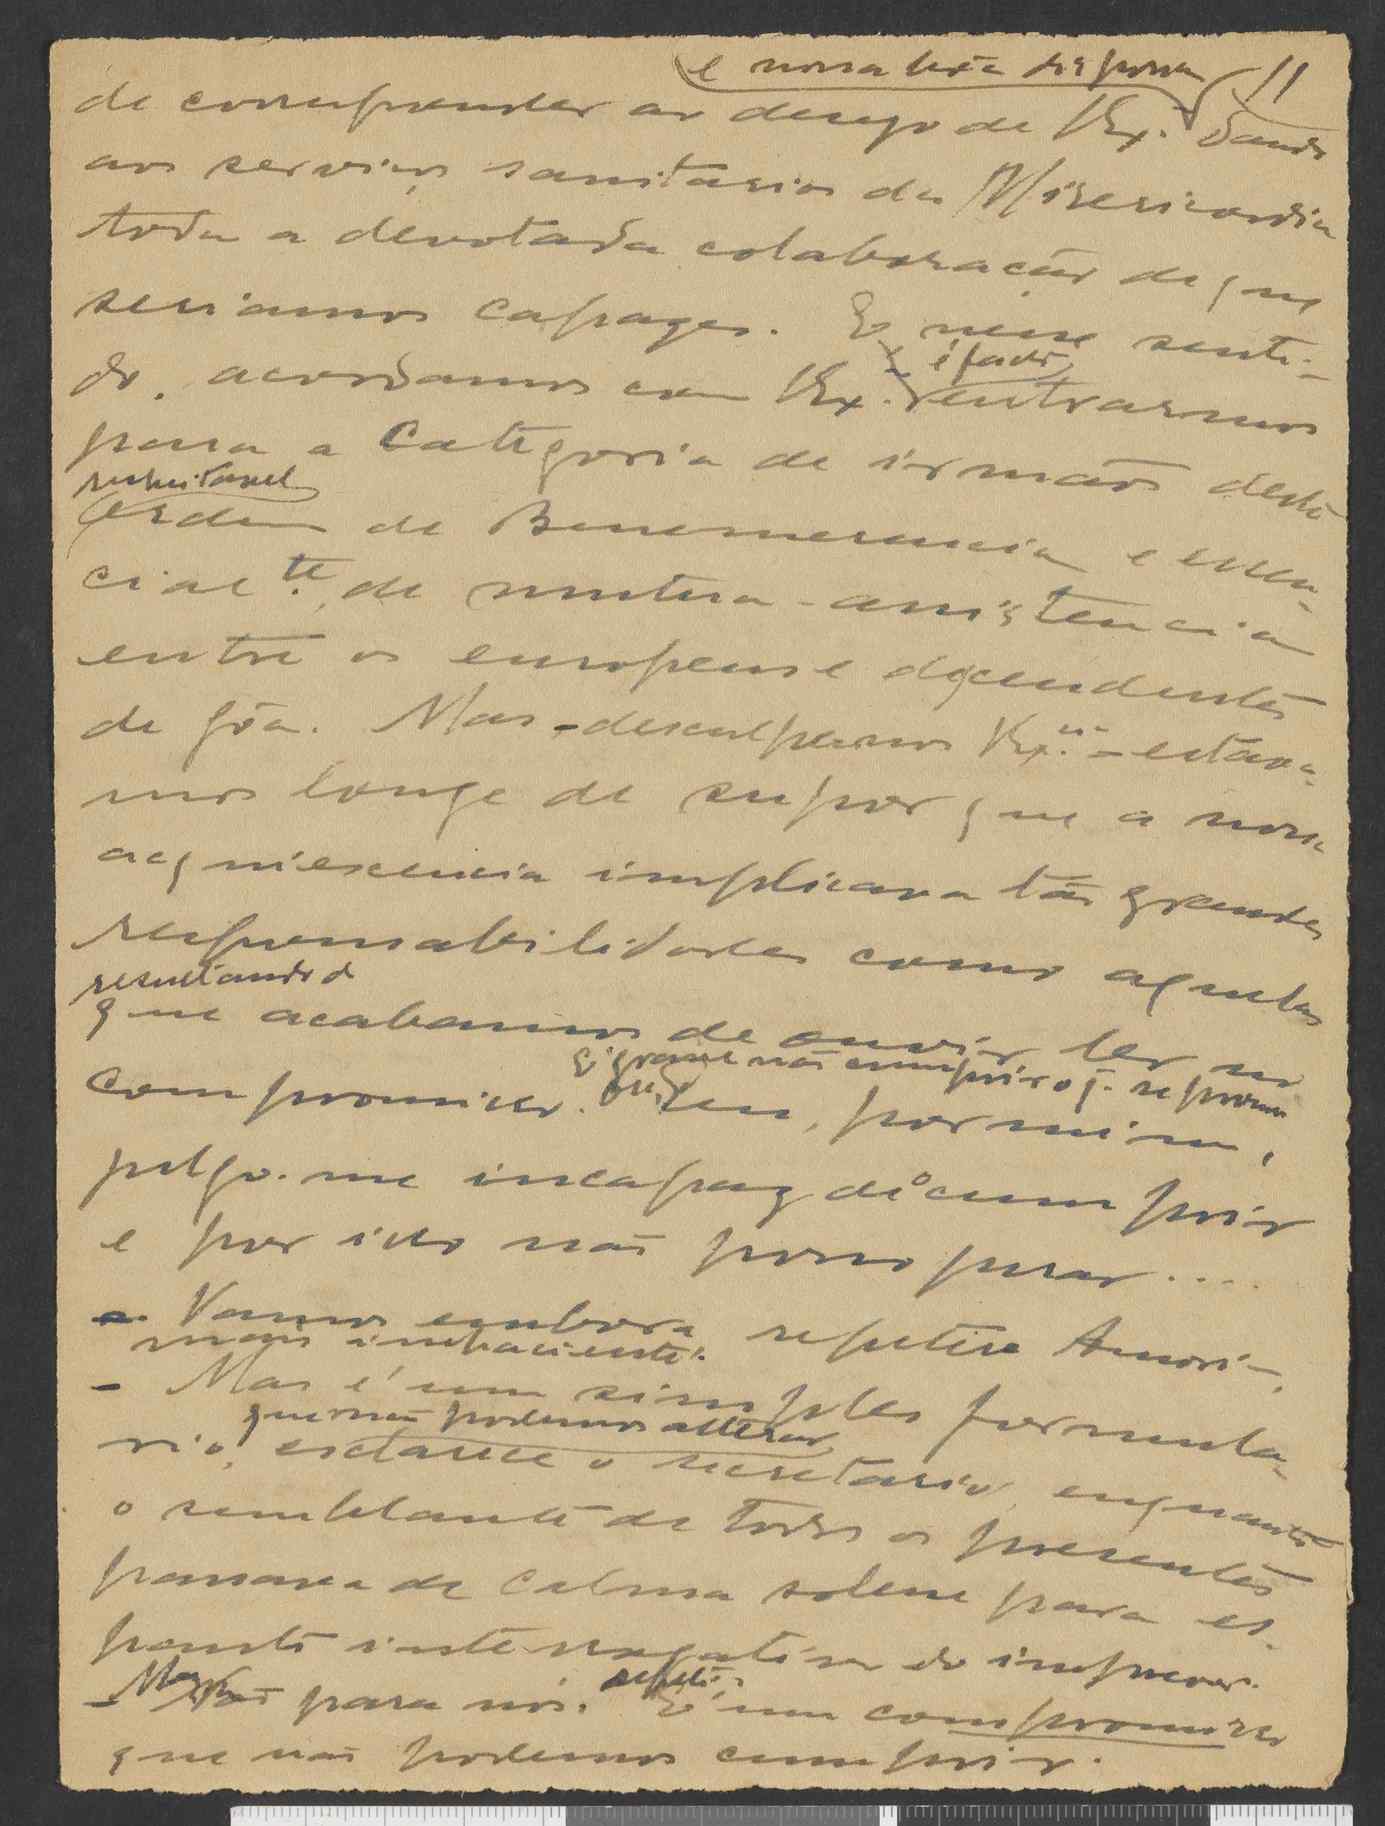 e nossa boa disposi 11
de corresponder ao desejo de VEx.ª dando
aos serviços sanitarios da Misericordia
toda a devotada colaboração de que
seriamos capazes. E nesse senti-
do, acordamos com VEx.as
é facto
entrarmos
para a Categoria de irmãos desta
respeitavel
Ordem de Benemerencia e essen-
cialte. de mutua-assistencia
entre os europeus e descendentes
de Gôa. Mas - desculpem-nos VEx.as - estava-
mos longe de supor que a nossa
aquiescencia implicava tão grandes
responsabilidades como aquelas
resultando d
que acabamos de ouvir ler no
é grave não cumprir o q. se promete
compromisso. Eu, por mim,
julgo-me incapaz de o cumprir
e por isso não posso jurar....
- Vamos embora, repetira Amorim,
mais impaciente.
- Mas é um simples formula-
que não podemos alterar
rio, esclarece o secretario, enquanto
o semblante de todos os presentes
passava da calma solene para es-
panto interrogativo do imprevisto.
- Mas não para nós. repeti. É um compromisso
que não podemos cumprir.